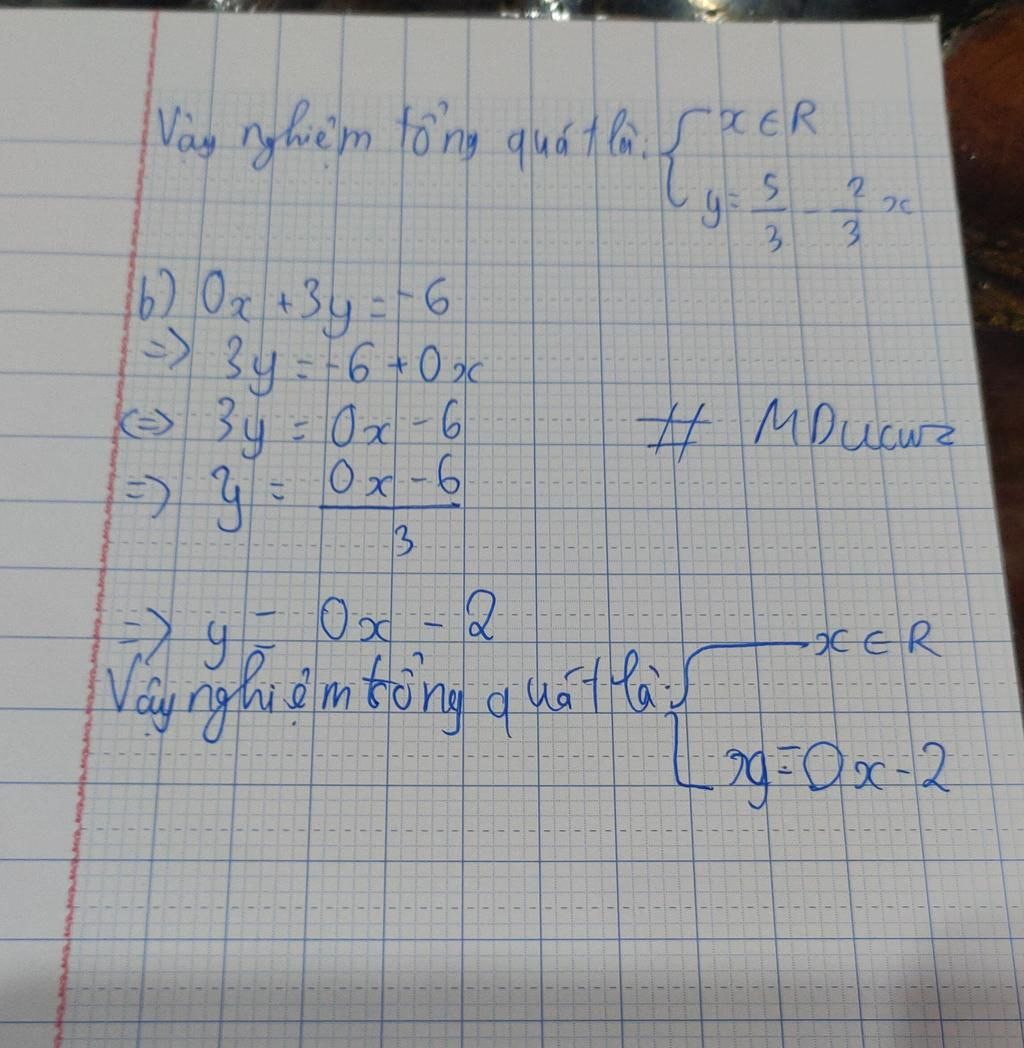 Vậy nghiệm tổng quát là: { x ∈ R
y = 5/3 - 2/3 x
b) 0x + 3y = -6
=> 3y = -6 + 0x
<=> 3y = 0x - 6
# MDucwz
=> y = (0x - 6)/3
=> y = 0x - 2
Vậy nghiệm tổng quát là: { x ∈ R
y = 0x - 2